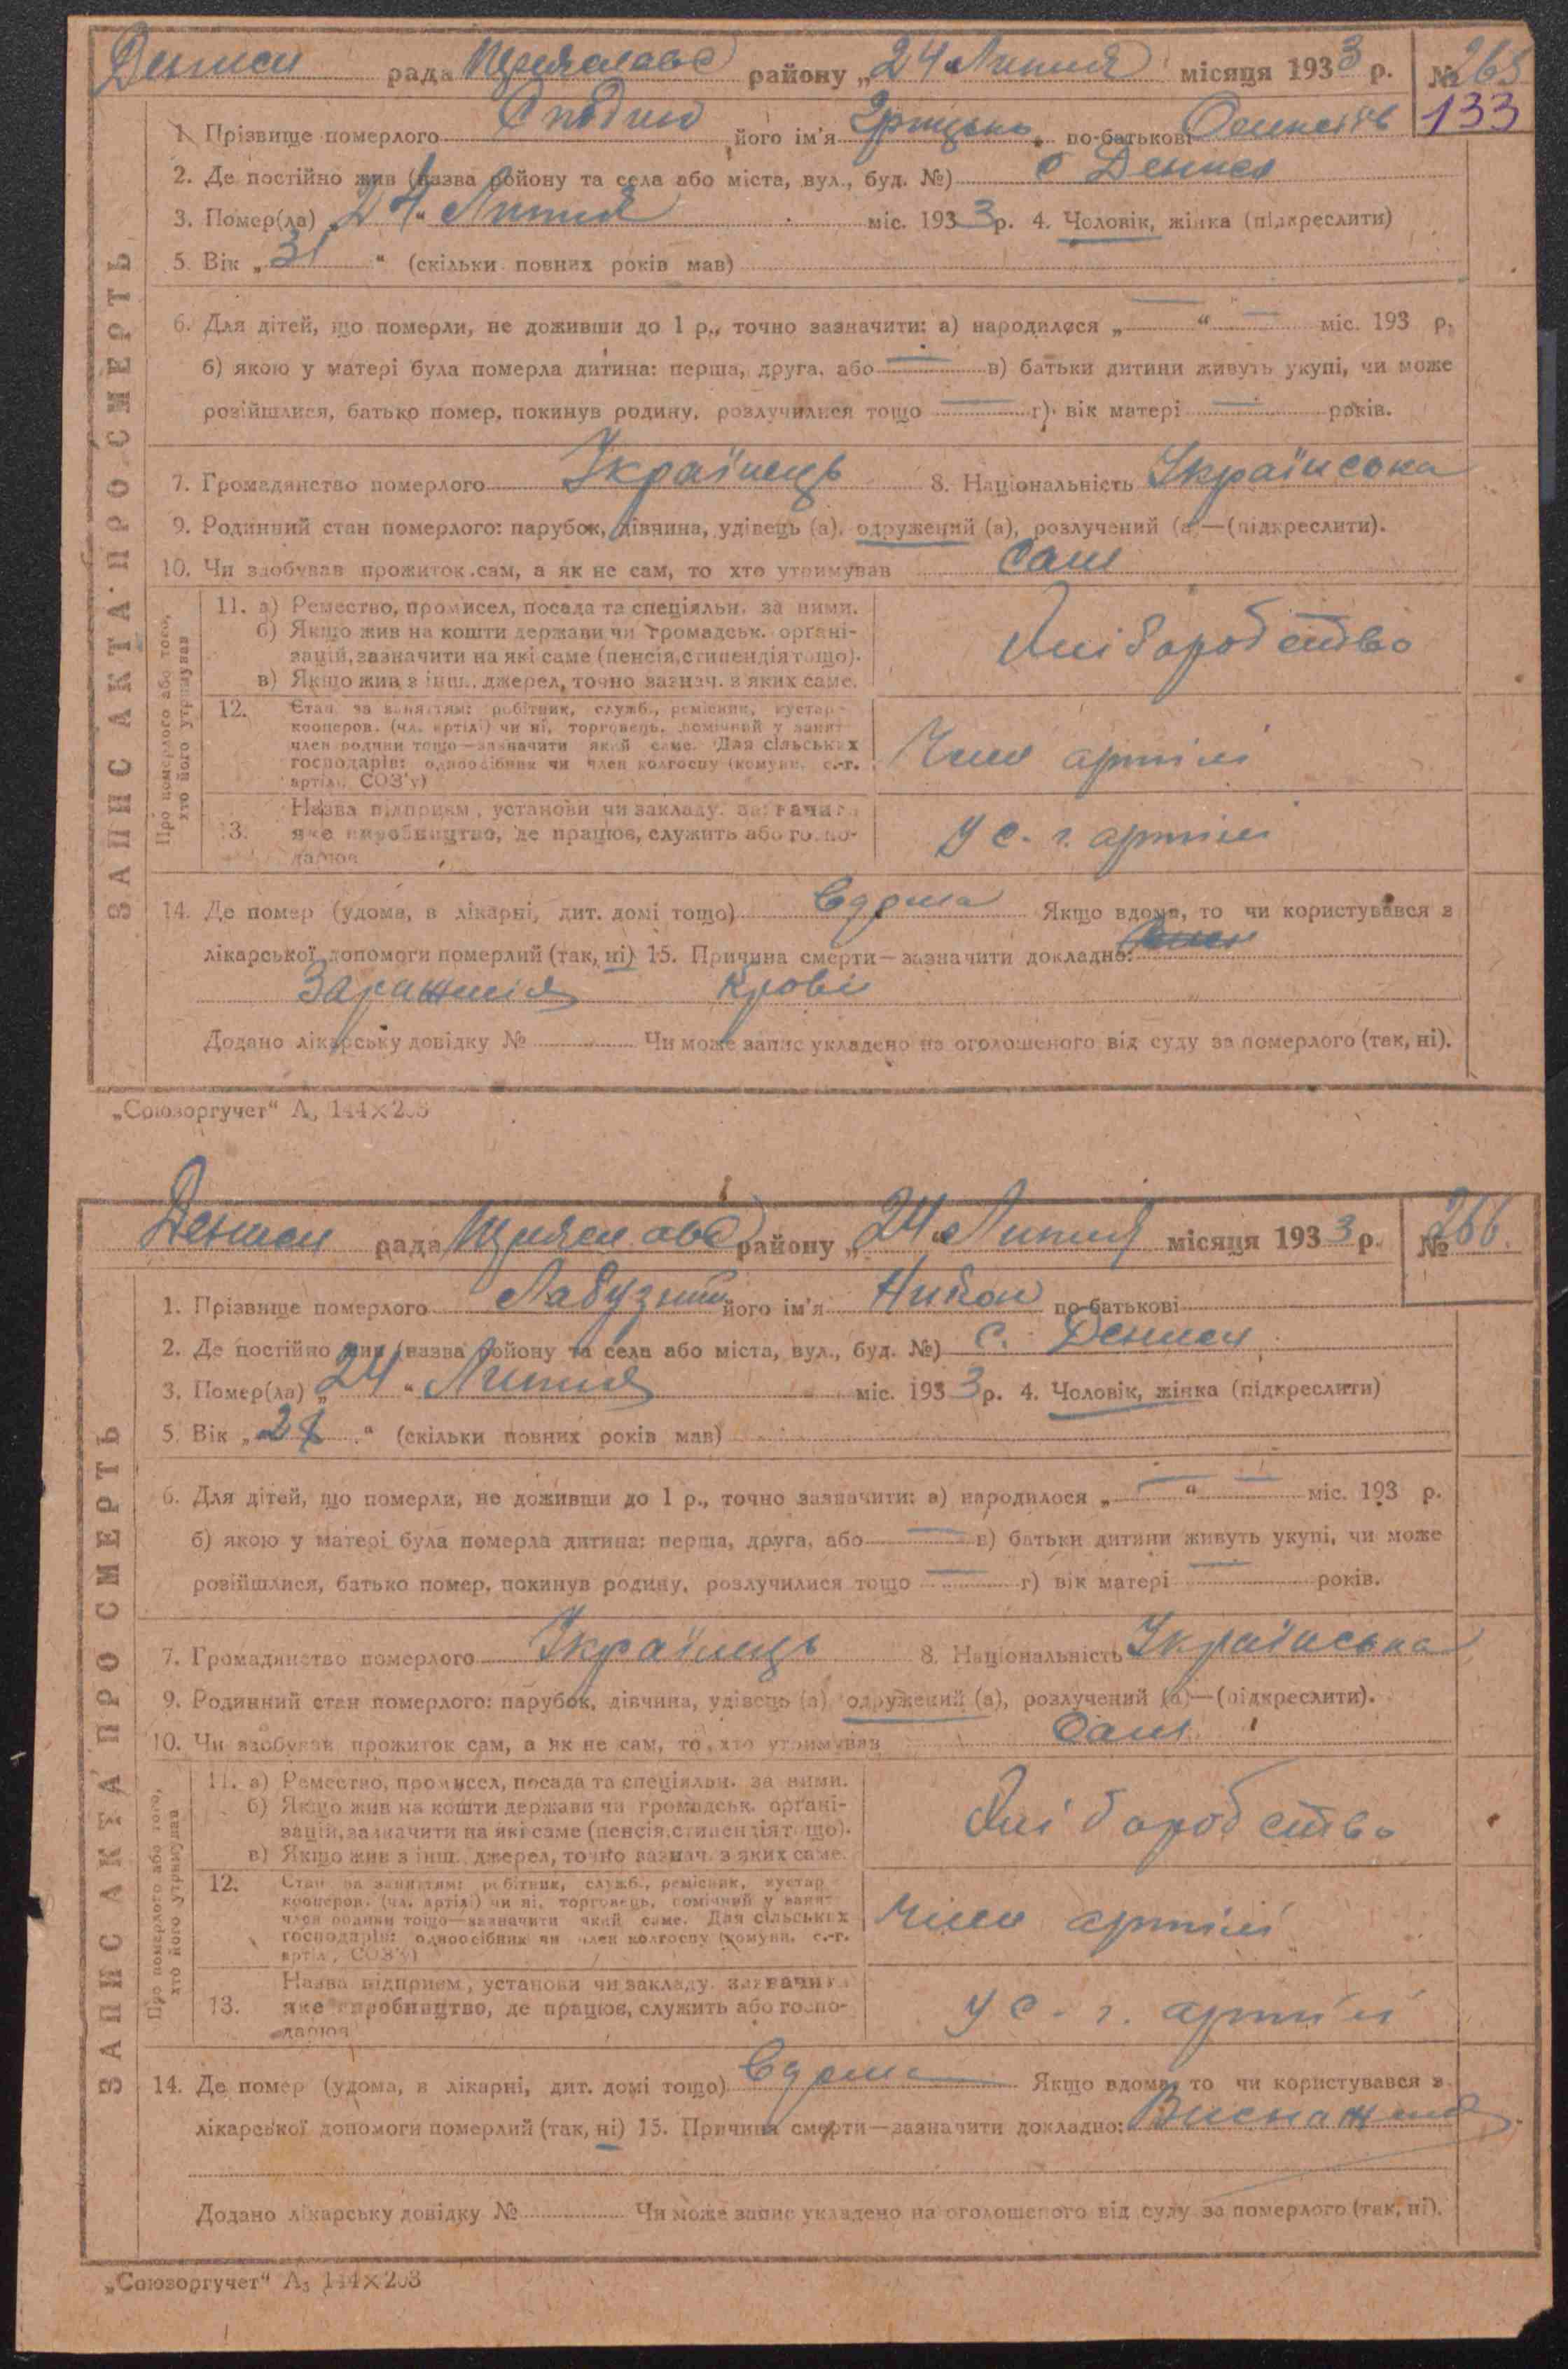 Дениси рада Переяславс району „24“ Липня місяця 1933 р. № 265
133
ЗАПИС АКТА ПРО СМЕРТЬ
1. Прізвище померлого його ім'я Грицько по-батькові
2. Де постійно жив (назва району та села або міста, вул., буд. №) с Дениси
3. Помер(ла) „24“ Липня міс. 1933 р. 4. Чоловік, жінка (підкреслити)
5. Вік „31“ (скільки повних років мав)
6. Для дітей, що померли, не доживши до 1 р., точно зазначити: а) народилося „—“ — міс. 193 р.
б) якою у матері була померла дитина: перша, друга, або — в) батьки дитини живуть укупі, чи може
розійшлися, батько помер, покинув родину, розлучилися тощо — г) вік матері — років.
7. Громадянство померлого Українець 8. Національність Українська
9. Родинний стан померлого: парубок, дівчина, удівець (а), одружений (а), розлучений (а)—(підкреслити).
10. Чи здобував прожиток сам, а як не сам, то хто утримував сам
Про померлого або того, хто його утримував
11. а) Ремество, промисел, посада та спеціяльн. за ними.
б) Якщо жив на кошти держави чи громадськ. органі-
зацій, зазначити на які саме (пенсія, стипендія тощо).
в) Якщо жив з інш. джерел, точно зазнач. з яких саме.
Хліборобство
12. Стан за заняттям: робітник, служб., ремісник, кустар
кооперов. (чл. артілі) чи ні, торговець, помічний у занят
член родини тощо—зазначити який саме. Для сільських
господарів: одноосібник чи член колгоспу (комуни, с.-г.
артілі, СОЗ'у)
Член артілі
13. Назва підприєм., установи чи закладу, зазначити
яке виробництво, де працює, служить або госпо-
дарює
У с. г. артілі
14. Де помер (удома, в лікарні, дит. домі тощо) вдома Якщо вдома, то чи користувався з
лікарської допомоги померлий (так, ні) 15. Причина смерти—зазначити докладно:
Зараження крові
Додано лікарську довідку № Чи може запис укладено на оголошеного від суду за померлого (так, ні).
„Союзоргучет“ А₅ 144×203
Дениси рада Переяславс району „24“ Липня місяця 1933 р. № 266
ЗАПИС АКТА ПРО СМЕРТЬ
1. Прізвище померлого його ім'я Никон по-батькові
2. Де постійно жив (назва району та села або міста, вул., буд. №) с. Дениси
3. Помер(ла) „24“ Липня міс. 1933 р. 4. Чоловік, жінка (підкреслити)
5. Вік (скільки повних років мав)
6. Для дітей, що померли, не доживши до 1 р., точно зазначити: а) народилося „—“ — міс. 193 р.
б) якою у матері була померла дитина: перша, друга, або — в) батьки дитини живуть укупі, чи може
розійшлися, батько помер, покинув родину, розлучилися тощо — г) вік матері — років.
7. Громадянство померлого Українець 8. Національність Українська
9. Родинний стан померлого: парубок, дівчина, удівець (а), одружений (а), розлучений (а)—(підкреслити).
10. Чи здобував прожиток сам, а як не сам, то хто утримував Сам
Про померлого або того, хто його утримував
11. а) Ремество, промисел, посада та спеціяльн. за ними.
б) Якщо жив на кошти держави чи громадськ. органі-
зацій, зазначити на які саме (пенсія, стипендія тощо).
в) Якщо жив з інш. джерел, точно зазнач. з яких саме.
Хліборобство
12. Стан за заняттям: робітник, служб., ремісник, кустар
кооперов. (чл. артілі) чи ні, торговець, помічний у занят
член родини тощо—зазначити який саме. Для сільських
господарів: одноосібник чи член колгоспу (комуни, с.-г.
артілі, СОЗ'у)
Член артілі
13. Назва підприєм., установи чи закладу, зазначити
яке виробництво, де працює, служить або госпо-
дарює
У с. г. артілі
14. Де помер (удома, в лікарні, дит. домі тощо) вдома Якщо вдома, то чи користувався з
лікарської допомоги померлий (так, ні) 15. Причина смерти—зазначити докладно: Виснаження
Додано лікарську довідку № Чи може запис укладено на оголошеного від суду за померлого (так, ні).
„Союзоргучет“ А₅ 144×203